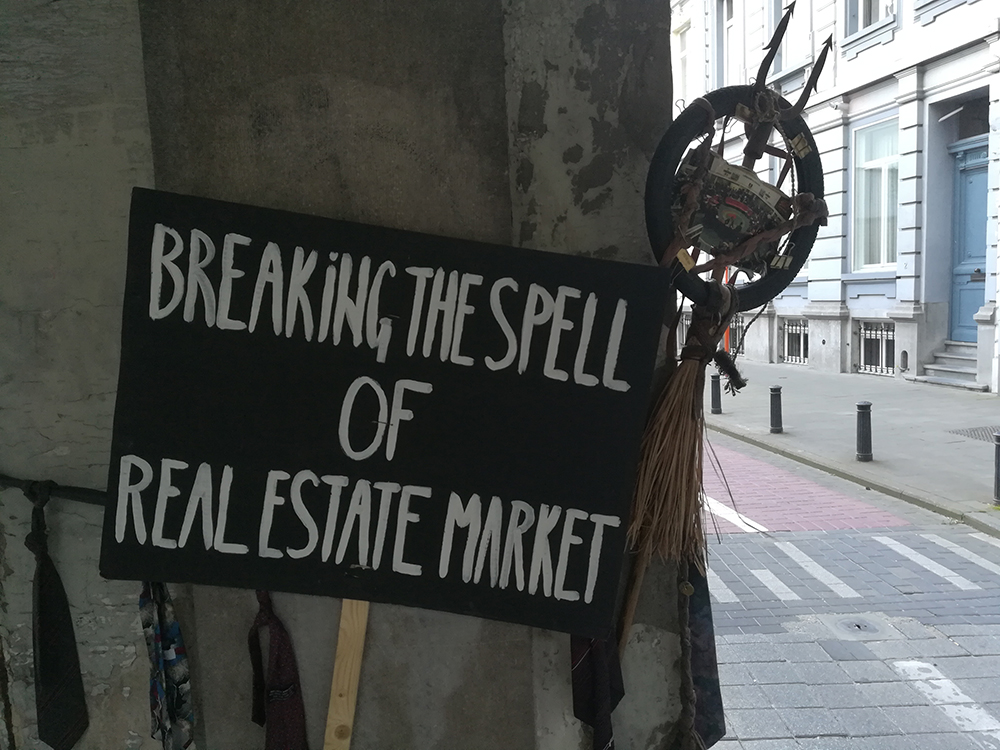 BREAKING THE SPELL
OF
REAL ESTATE MARKET